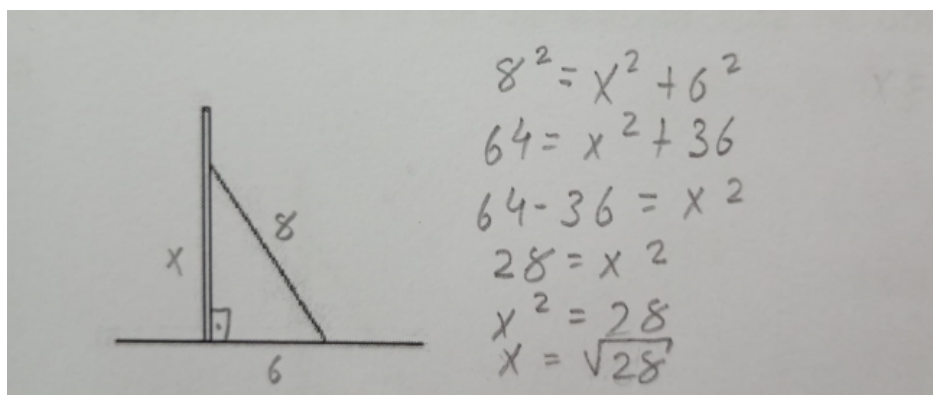 x
8
6
8² = x² + 6²
64 = x² + 36
64 - 36 = x²
28 = x²
x² = 28
x = √28